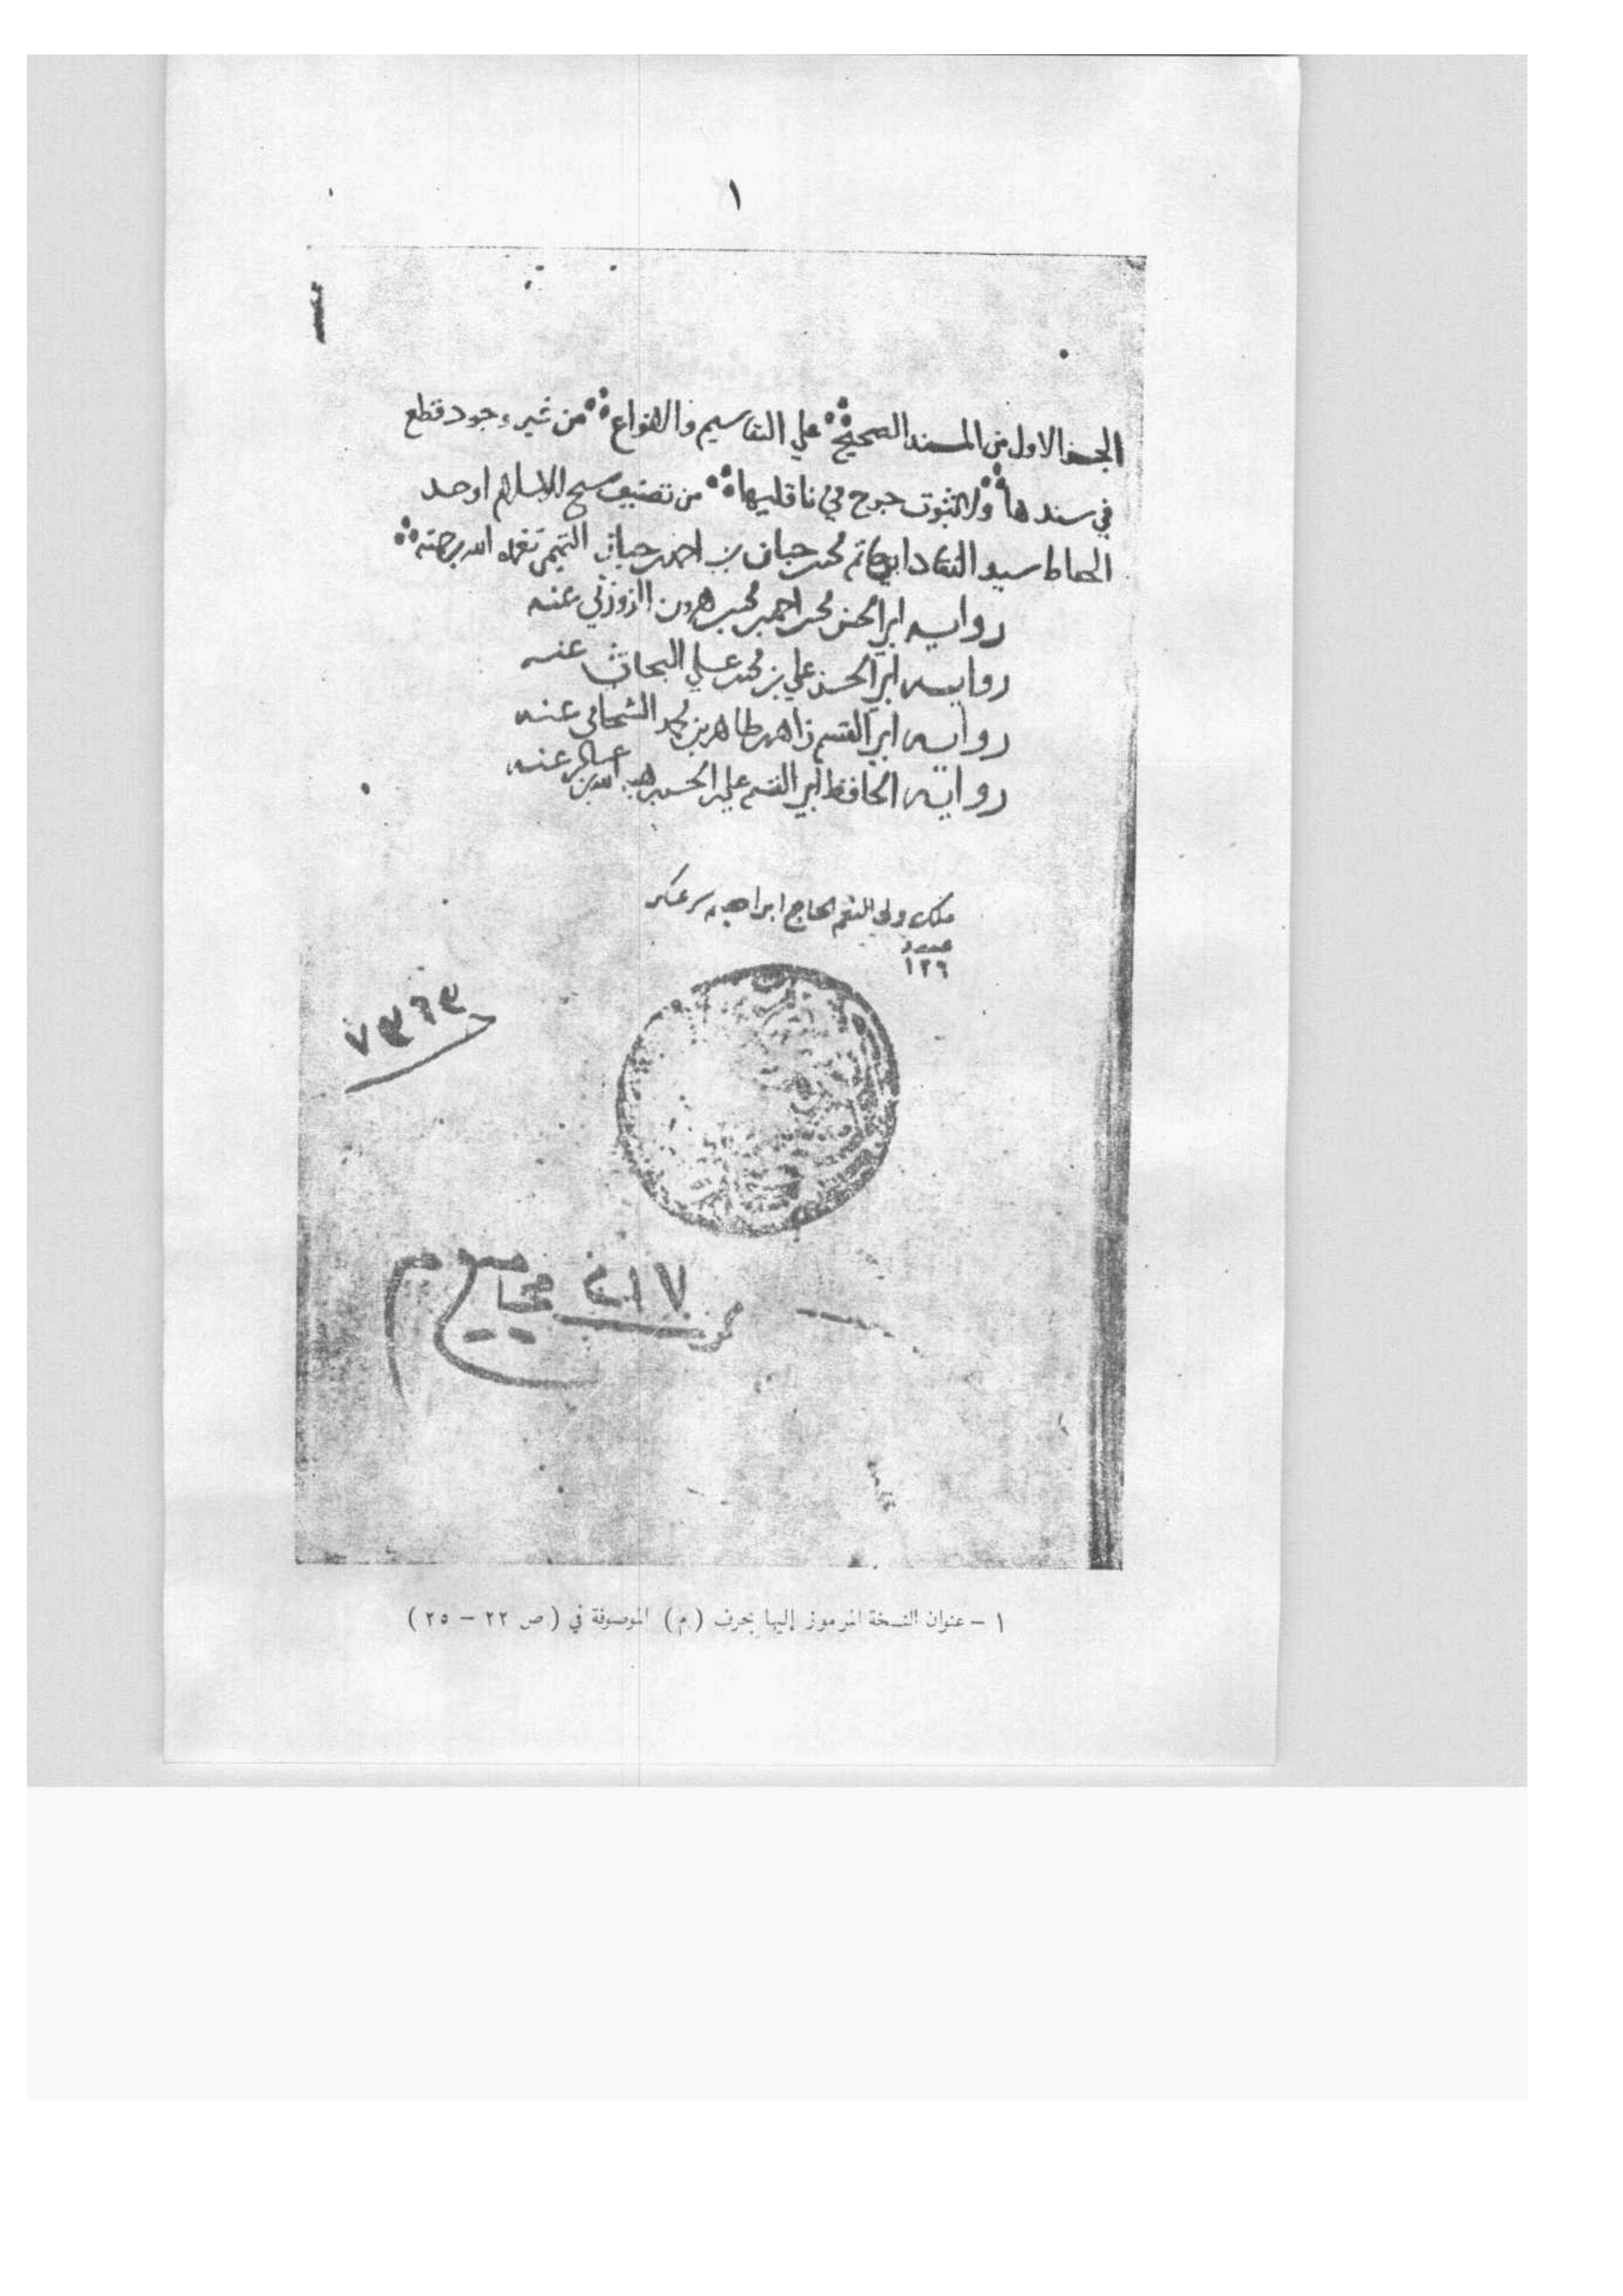 ١
الجز الاول من المسند الصحيح على التقاسيم والانواع من غير وجود قطع
في سندها ولا ثبوت جرح في ناقليها من تصنيف شيخ الاسلام اوحد
الحفاظ سيد النقاد ابي حاتم محمد بن حبان بن احمد بن حبان التميمي تغمده الله برحمته
روايه ابي الحسن محمد بن احمد بن محمد بن هرون الزوزني عنه
روايه ابي الحسن علي بن محمد بن علي البحاثي عنه
روايه ابي القسم زاهر بن طاهر بن محمد الشحامي عنه
رواية الحافظ ابي القسم علي بن الحسن بن هبة الله بن عساكر عنه
ملك ولي النعم الحاج ابراهيم سرعسكر
١٢٦
٢١٧ مجاميع م
١ - عنوان النسخة المرموز إليها بحرف (م) الموصوفة في (ص ٢٢ - ٢٥)